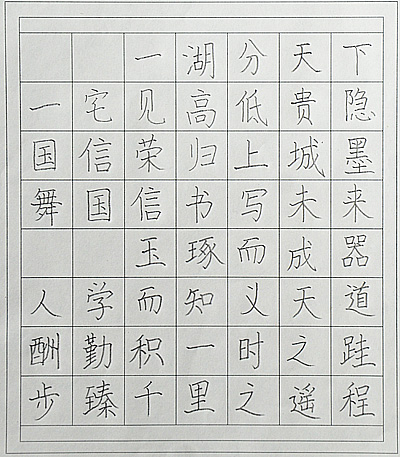 一湖分天下
一宅见高低贵隐
国信荣归上城墨
舞国信书写未来
玉琢而成器
人学而知义天道
酬勤积一时之跬
步臻千里之遥程